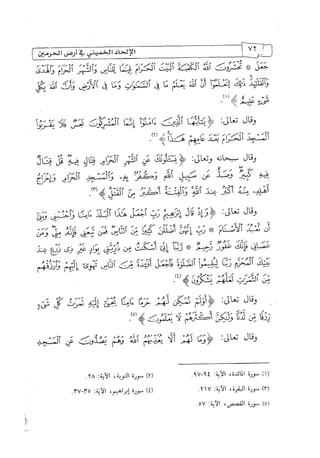 ٧٢ الإلحاد الخميني في أرض الحرمين
جَعَلَ * تُحْشَرُونَ اللَّهُ الْكَعْبَةَ الْبَيْتَ الْحَرَامَ قِيَامًا لِلنَّاسِ وَالشَّهْرَ الْحَرَامَ وَالْهَدْيَ
وَالْقَلَائِدَ ذَلِكَ لِتَعْلَمُوا أَنَّ اللَّهَ يَعْلَمُ مَا فِي السَّمَاوَاتِ وَمَا فِي الْأَرْضِ وَأَنَّ اللَّهَ بِكُلِّ
شَيْءٍ عَلِيمٌ ﴾(١).
وقال تعالى: ﴿ يَاأَيُّهَا الَّذِينَ ءَامَنُوا إِنَّمَا الْمُشْرِكُونَ نَجَسٌ فَلَا يَقْرَبُوا
الْمَسْجِدَ الْحَرَامَ بَعْدَ عَامِهِمْ هَذَا ﴾(٢).
وقال سبحانه وتعالى: ﴿ يَسْأَلُونَكَ عَنِ الشَّهْرِ الْحَرَامِ قِتَالٍ فِيهِ قُلْ قِتَالٌ
فِيهِ كَبِيرٌ وَصَدٌّ عَنْ سَبِيلِ اللَّهِ وَكُفْرٌ بِهِ وَالْمَسْجِدِ الْحَرَامِ وَإِخْرَاجُ
أَهْلِهِ مِنْهُ أَكْبَرُ عِنْدَ اللَّهِ وَالْفِتْنَةُ أَكْبَرُ مِنَ الْقَتْلِ ﴾(٣).
وقال تعالى: ﴿ وَإِذْ قَالَ إِبْرَاهِيمُ رَبِّ اجْعَلْ هَذَا الْبَلَدَ ءَامِنًا وَاجْنُبْنِي وَبَنِيَّ
أَنْ نَعْبُدَ الْأَصْنَامَ * رَبِّ إِنَّهُنَّ أَضْلَلْنَ كَثِيرًا مِنَ النَّاسِ فَمَنْ تَبِعَنِي فَإِنَّهُ مِنِّي وَمَنْ
عَصَانِي فَإِنَّكَ غَفُورٌ رَحِيمٌ * رَبَّنَا إِنِّي أَسْكَنْتُ مِنْ ذُرِّيَّتِي بِوَادٍ غَيْرِ ذِي زَرْعٍ عِنْدَ
بَيْتِكَ الْمُحَرَّمِ رَبَّنَا لِيُقِيمُوا الصَّلَاةَ فَاجْعَلْ أَفْئِدَةً مِنَ النَّاسِ تَهْوِي إِلَيْهِمْ وَارْزُقْهُمْ
مِنَ الثَّمَرَاتِ لَعَلَّهُمْ يَشْكُرُونَ ﴾(٤).
وقال تعالى: ﴿ أَوَلَمْ نُمَكِّنْ لَهُمْ حَرَمًا ءَامِنًا يُجْبَى إِلَيْهِ ثَمَرَاتُ كُلِّ شَيْءٍ
رِزْقًا مِنْ لَدُنَّا وَلَكِنَّ أَكْثَرَهُمْ لَا يَعْلَمُونَ ﴾(٥).
وقال تعالى: ﴿ وَمَا لَهُمْ أَلَّا يُعَذِّبَهُمُ اللَّهُ وَهُمْ يَصُدُّونَ عَنِ الْمَسْجِدِ
(١) سورة المائدة، الآية: ٩٤-٩٧. (٢) سورة التوبة، الآية: ٢٨.
(٣) سورة البقرة، الآية: ٢١٧. (٤) سورة إبراهيم، الآية: ٣٥-٣٧.
(٥) سورة القصص، الآية: ٥٧.